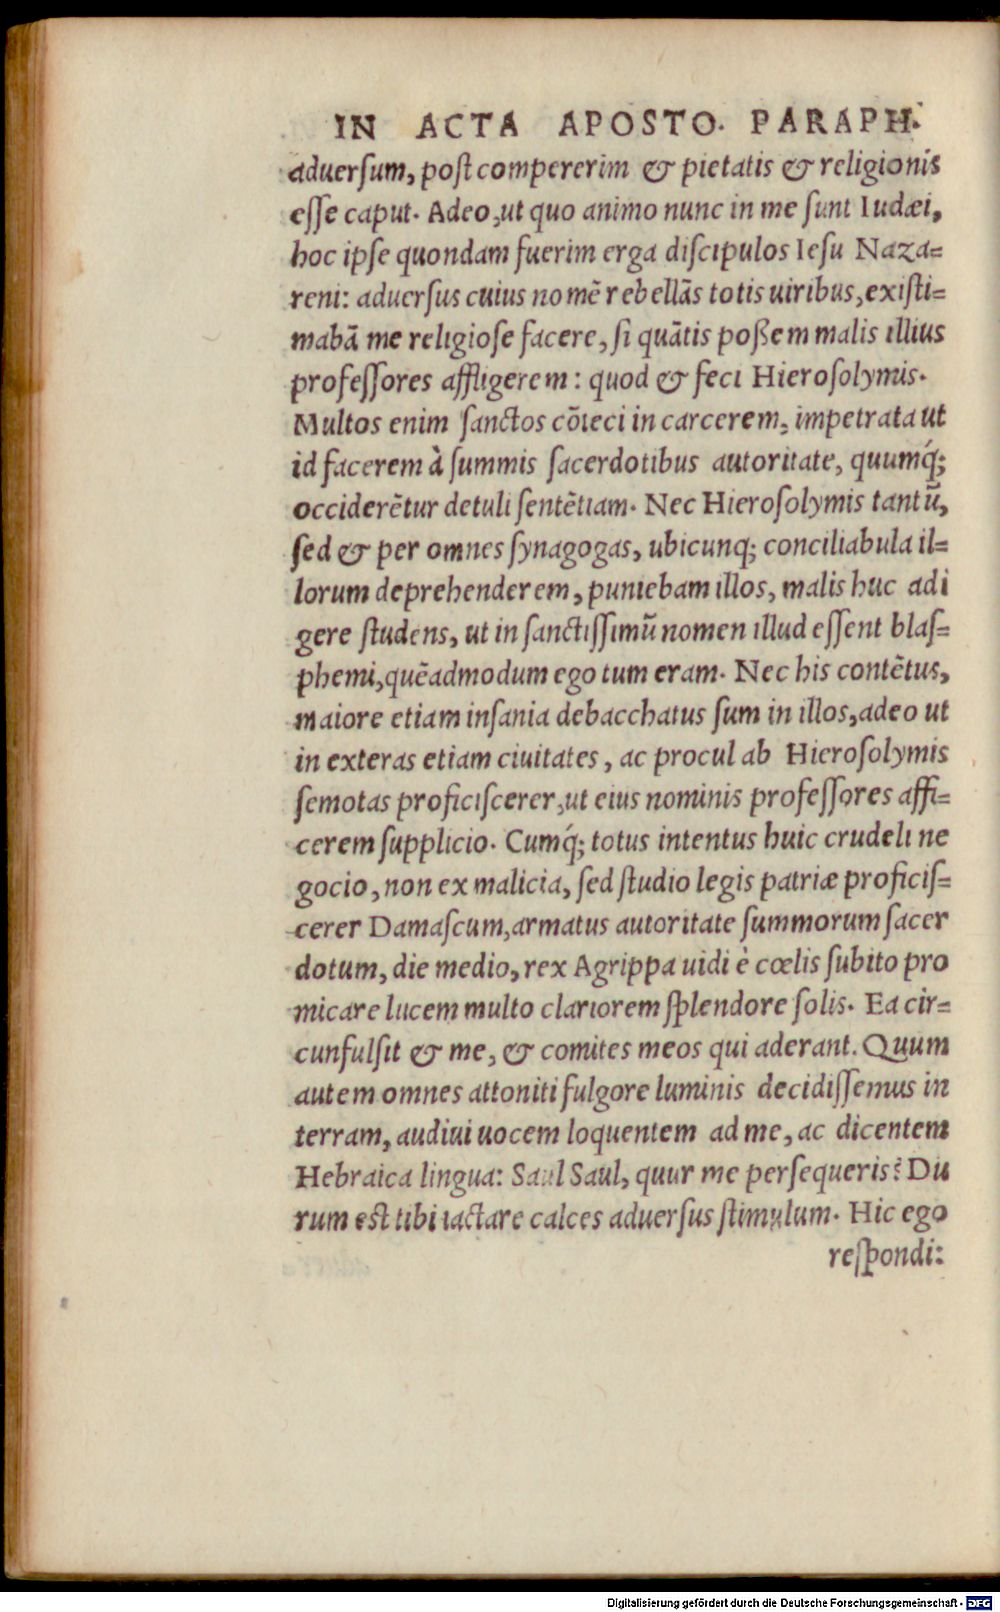 IN ACTA APOSTO. PARAPH.
aduerſum, poſt compererim & pietatis & religionis
eſſe caput. Adeo, ut quo animo nunc in me ſunt Iudæi,
hoc ipſe quondam fuerim erga diſcipulos Ieſu Naza-
reni: aduerſus cuius nomē rebellãs totis uiribus, exiſti-
mabã me religioſe facere, ſi quãtis poßem malis illius
profeſſores affligerem: quod & feci Hieroſolymis.
Multos enim ſanctos cõieci in carcerem, impetrata ut
id facerem à ſummis ſacerdotibus autoritate, quumq́;
occiderētur detuli ſentētiam. Nec Hieroſolymis tantũ,
ſed & per omnes ſynagogas, ubicunq; conciliabula il-
lorum deprehenderem, puniebam illos, malis huc adi
gere ſtudens, ut in ſanctiſſimũ nomen illud eſſent blaſ-
phemi, quēadmodum ego tum eram. Nec his contētus,
maiore etiam inſania debacchatus ſum in illos, adeo ut
in exteras etiam ciuitates, ac procul ab Hieroſolymis
ſemotas proficiſcerer, ut eius nominis profeſſores affi-
cerem ſupplicio. Cumq́; totus intentus huic crudeli ne
gocio, non ex malicia, ſed ſtudio legis patriæ proficiſ-
cerer Damaſcum, armatus autoritate ſummorum ſacer
dotum, die medio, rex Agrippa uidi è cœlis ſubito pro
micare lucem multo clariorem ſplendore ſolis. Ea cir-
cunfulſit & me, & comites meos qui aderant. Quum
autem omnes attoniti fulgore luminis decidiſſemus in
terram, audiui uocem loquentem ad me, ac dicentem
Hebraica lingua: Saul Saul, quur me perſequeris? Du
rum est tibi iactare calces aduerſus ſtimulum. Hic ego
reſpondi:
Digitalisierung gefördert durch die Deutsche Forschungsgemeinschaft - DFG